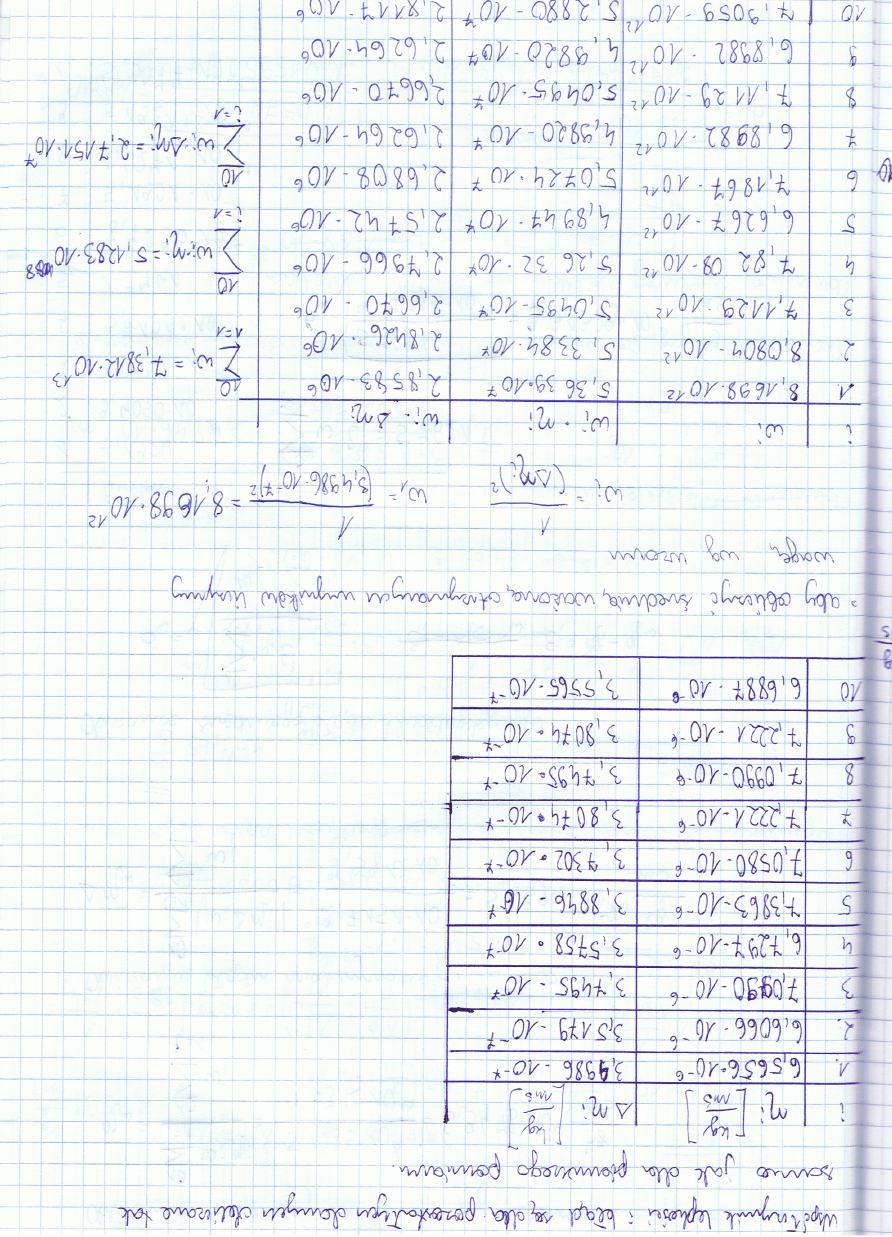 współczynnik lepkości i błąd są dla pozostałych danych obliczane tak
samo jak dla pierwszego pomiaru.
i ηi [kg/ms] Δηi [kg/ms]
1. 6,5656·10⁻⁶ 3,4986·10⁻⁷
2. 6,6066·10⁻⁶ 3,5179·10⁻⁷
3 7,0990·10⁻⁶ 3,7495·10⁻⁷
4 6,7297·10⁻⁶ 3,5758·10⁻⁷
5 7,3863·10⁻⁶ 3,8846·10⁻⁷
6 7,0580·10⁻⁶ 3,7302·10⁻⁷
7 7,2221·10⁻⁶ 3,8074·10⁻⁷
8 7,0990·10⁻⁶ 3,7495·10⁻⁷
9 7,2221·10⁻⁶ 3,8074·10⁻⁷
10 6,6887·10⁻⁶ 3,5565·10⁻⁷
aby obliczyć średnią ważoną otrzymanych wyników liczymy
wagę wg wzoru
wi = 1/(Δηi)² w₁ = 1/(3,4986·10⁻⁷)² = 8,1698·10¹²
i wi wi·ηi wi·Δηi
1 8,1698·10¹² 5,3639·10⁷ 2,8583·10⁶
2 8,0804·10¹² 5,3384·10⁷ 2,8426·10⁶
3 7,1129·10¹² 5,0495·10⁷ 2,6670·10⁶
4 7,8208·10¹² 5,2632·10⁷ 2,7966·10⁶
5 6,6267·10¹² 4,8947·10⁷ 2,5742·10⁶
6 7,1867·10¹² 5,0724·10⁷ 2,6808·10⁶
7 6,8982·10¹² 4,9820·10⁷ 2,6264·10⁶
8 7,1129·10¹² 5,0495·10⁷ 2,6670·10⁶
9 6,8982·10¹² 4,9820·10⁷ 2,6264·10⁶
10 7,9059·10¹² 5,2880·10⁷ 2,8117·10⁶
10∑i=1 wi = 7,3812·10¹³
10∑i=1 wi·ηi = 5,1283·10⁸
10∑i=1 wi·Δηi = 2,7151·10⁷